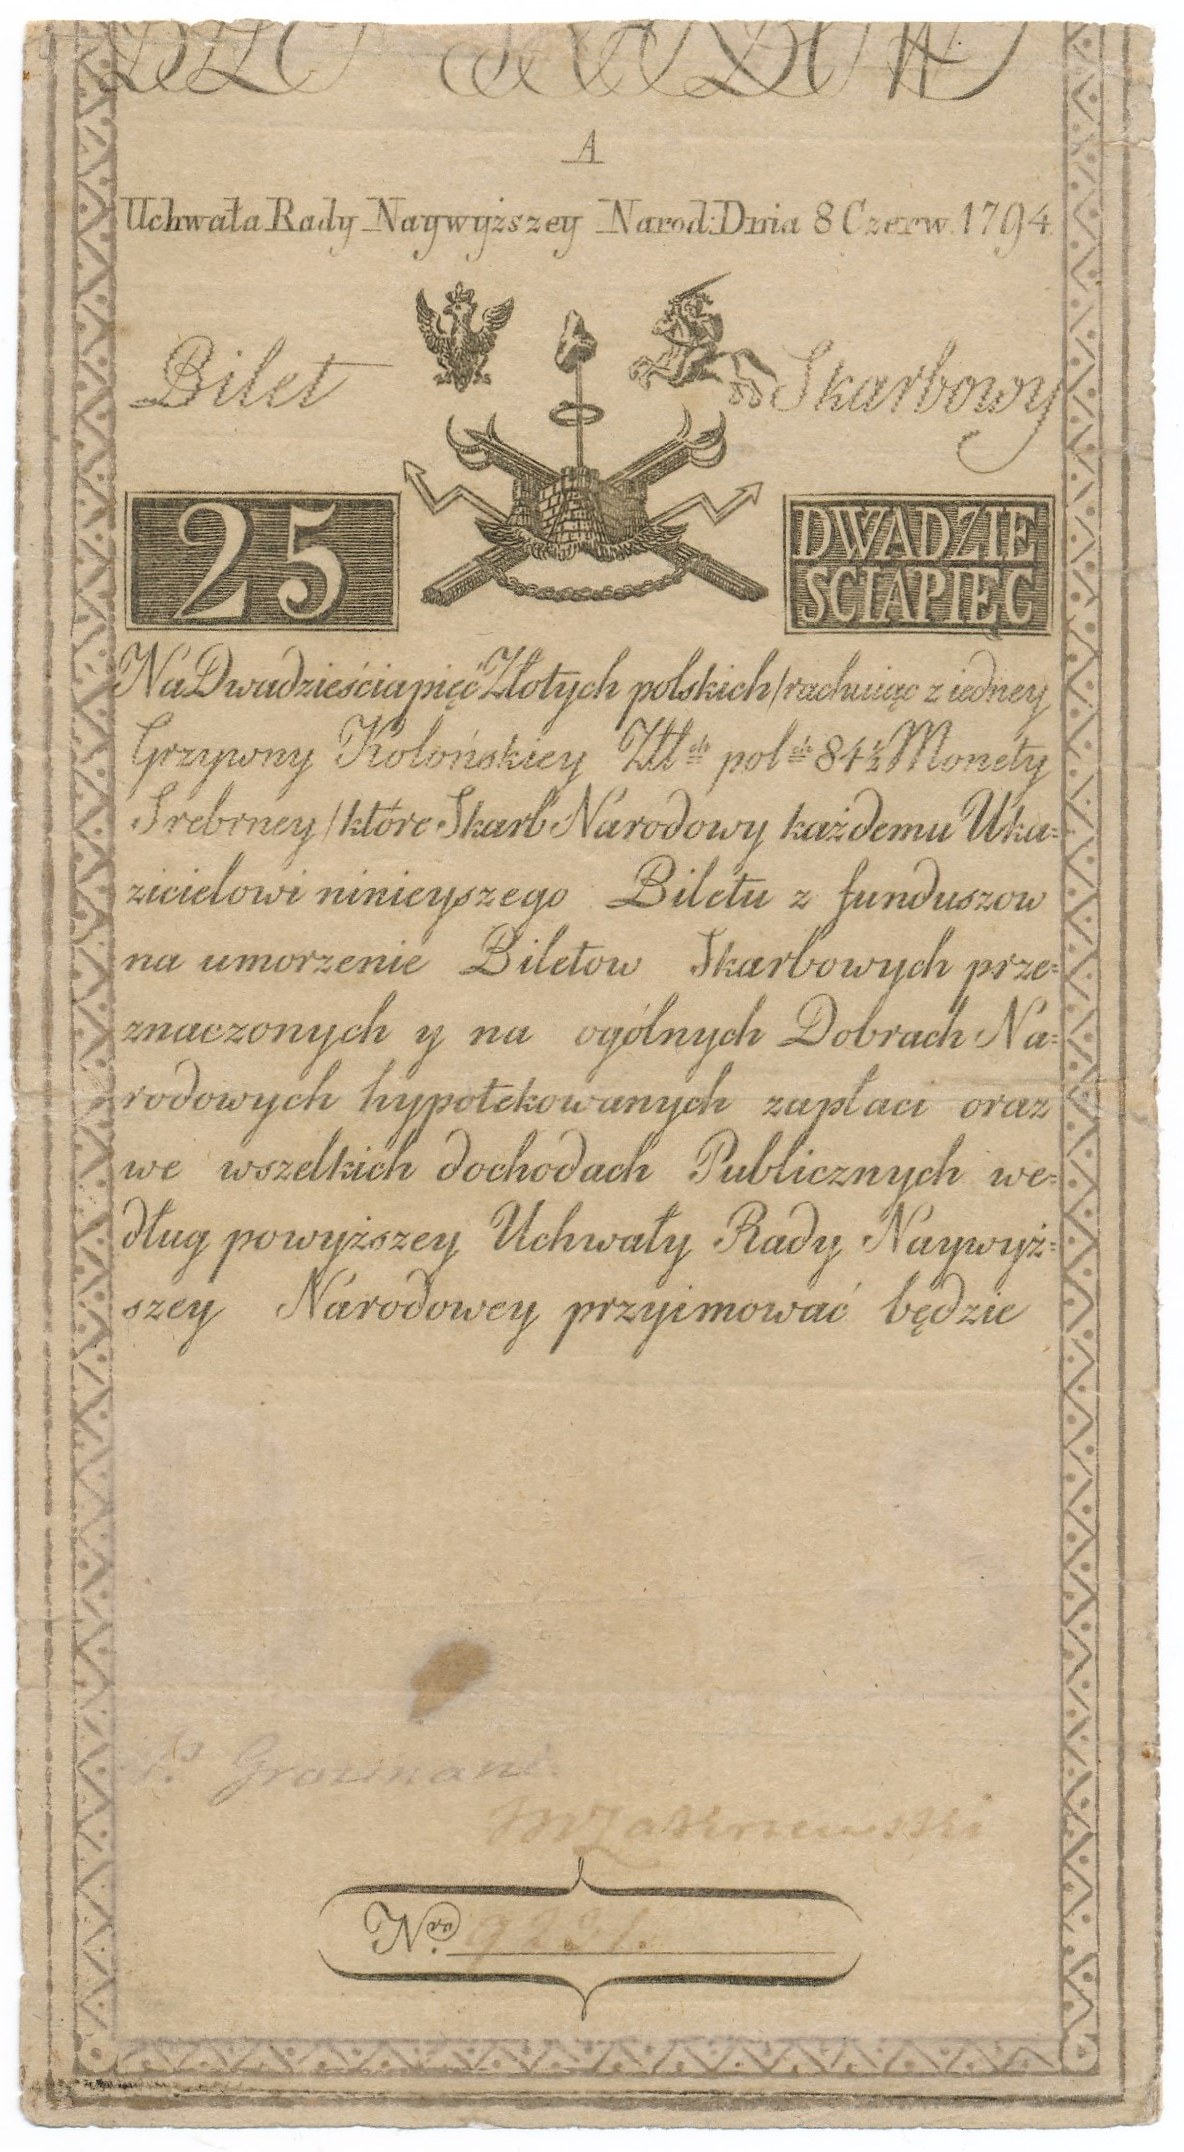 A
Uchwała Rady Naywyższey Narod: Dnia 8 Czerw. 1794
Bilet Skarbowy
25
DWADZIE
SCIAPIĘC
Na Dwadzieściapięć Złotych polskich /rachuiąc z iedney
Grzywny Kolońskiey Złł ch pol ch 84½ Monety
Srebrney/ które Skarb Narodowy każdemu Uka=
zicielowi ninieyszego Biletu z funduszow
na umorzenie Biletow Skarbowych prze=
znaczonych y na ogólnych Dobrach Na=
rodowych hypotekowanych zapłaci oraz
we wszelkich dochodach Publicznych we=
dług powyższey Uchwały Rady Naywyż=
szey Narodowey przyimować będzie
Nro. 9231.